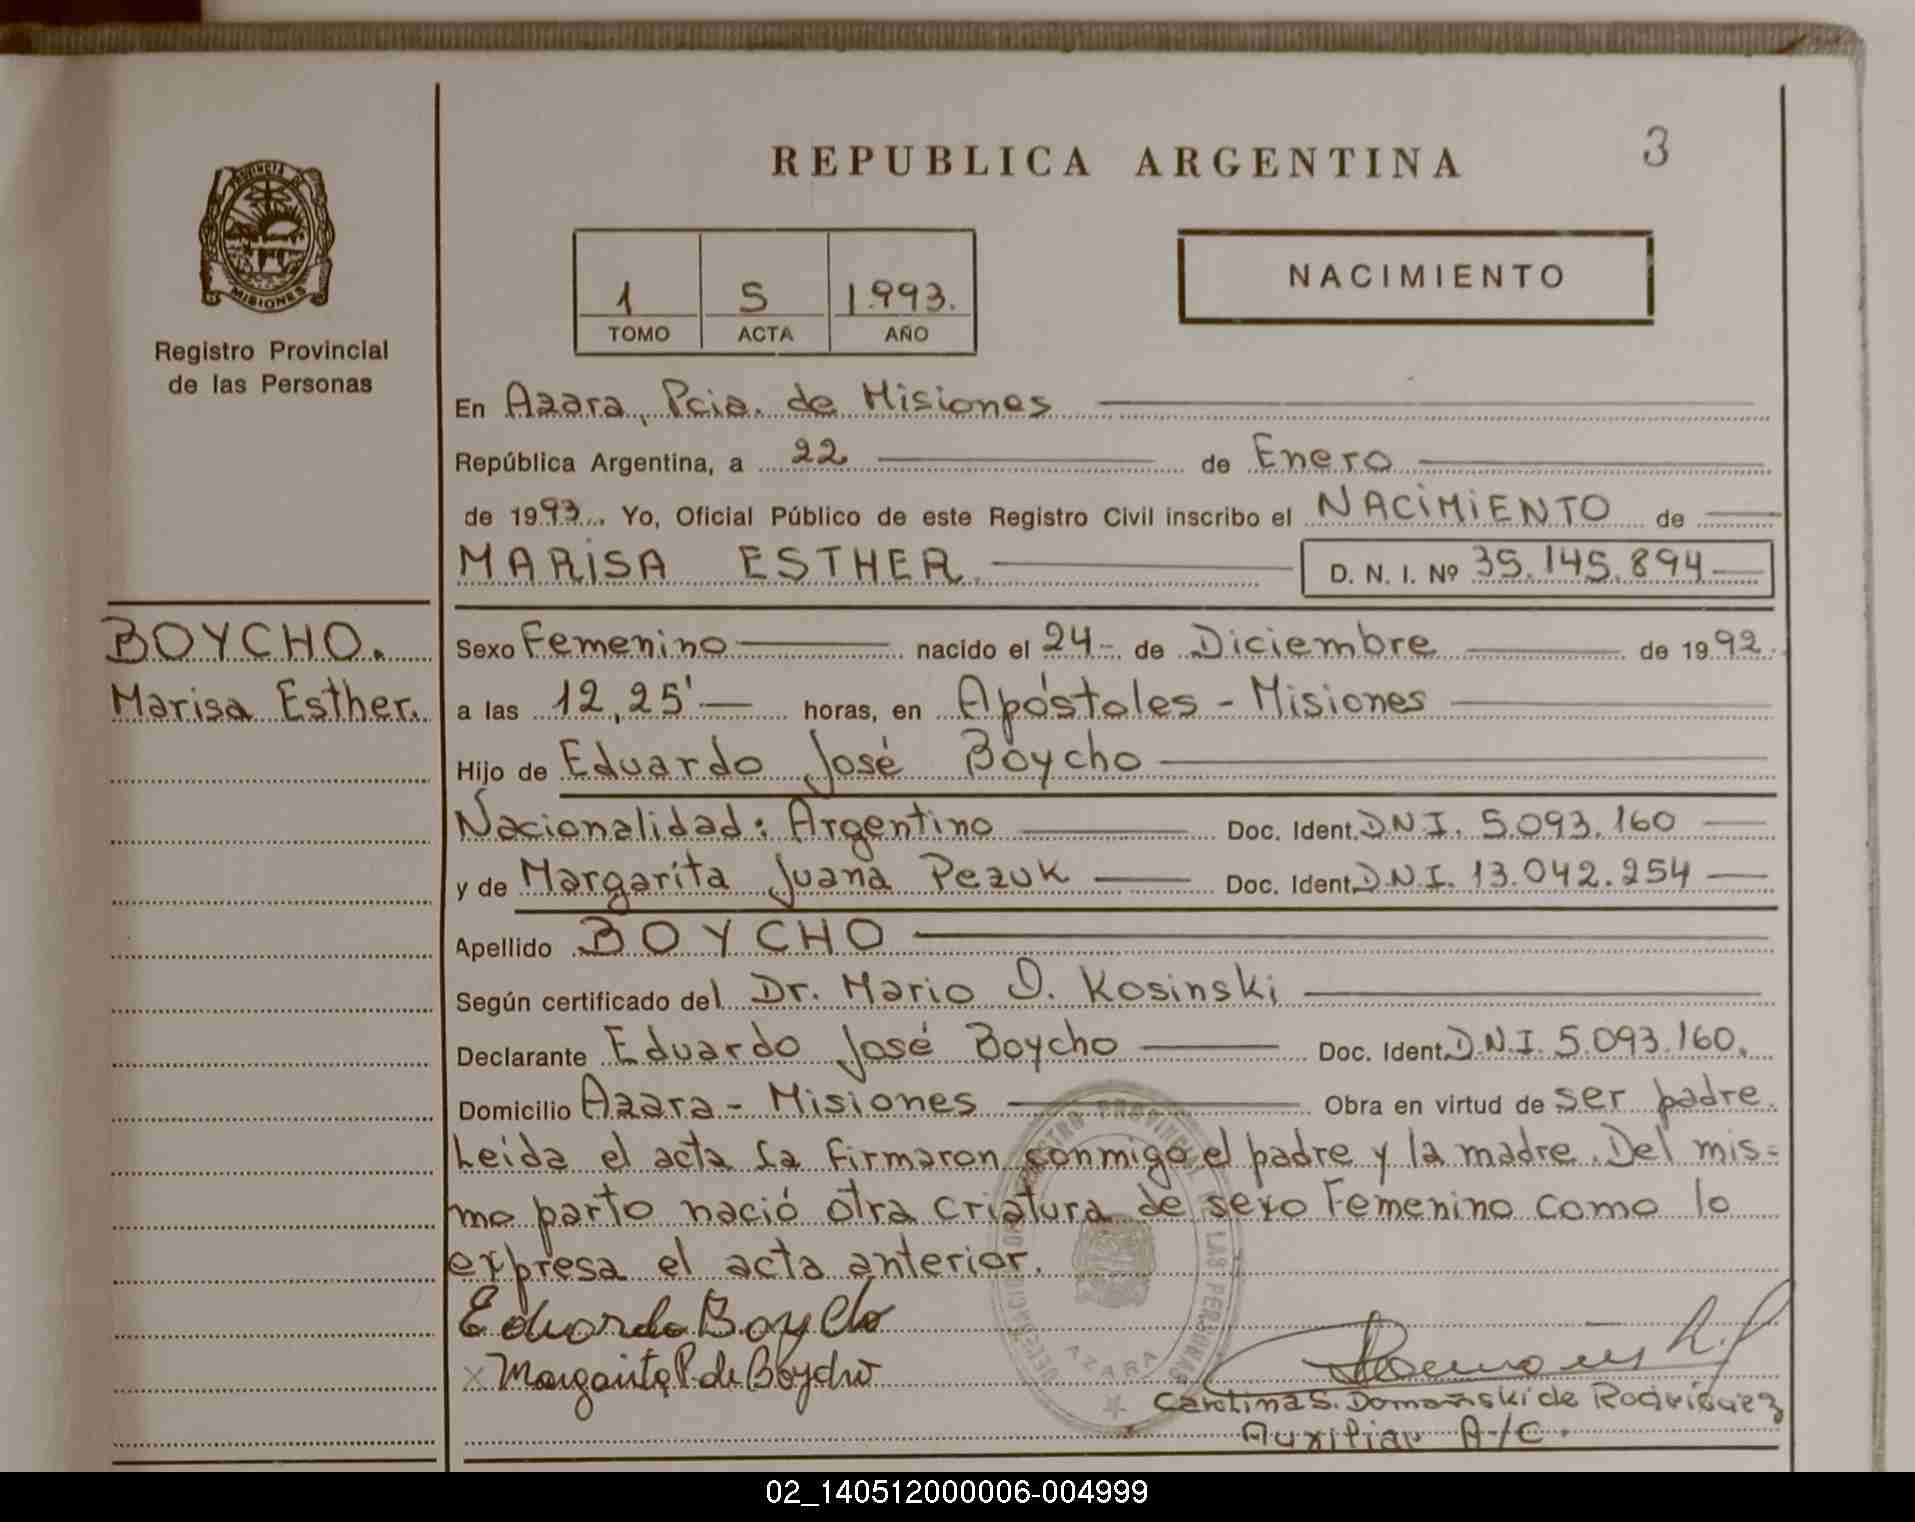 3
REPUBLICA ARGENTINA
PROVINCIA DE
MISIONES
Registro Provincial
de las Personas
1 5 1.993.
TOMO ACTA AÑO
NACIMIENTO
En Azara, Pcia. de Misiones
República Argentina, a 22 de Enero
de 1993. Yo, Oficial Público de este Registro Civil inscribo el NACIMIENTO de
MARISA ESTHER D. N. I. Nº 35.145.894
BOYCHO.
Marisa Esther.
Sexo Femenino nacido el 24- de Diciembre de 1992.
a las 12,25' horas, en Apóstoles - Misiones
Hijo de Eduardo José Boycho
Nacionalidad: Argentino Doc. Ident. DNI. 5.093.160
y de Margarita Juana Pezuk Doc. Ident. D.N.I. 13.042.254
Apellido BOYCHO
Según certificado del Dr. Mario O. Kosinski
Declarante Eduardo José Boycho Doc. Ident. D.N.I. 5.093.160.
Domicilio Azara - Misiones Obra en virtud de ser padre.
Leída el acta la firmaron conmigo el padre y la madre. Del mis=
mo parto nació otra criatura de sexo Femenino como lo
expresa el acta anterior.
Eduardo Boycho
x Margarita P. de Boycho
AZARA
Carolina S. Domañski de Rodríguez
Auxiliar A/C.
02_140512000006-004999